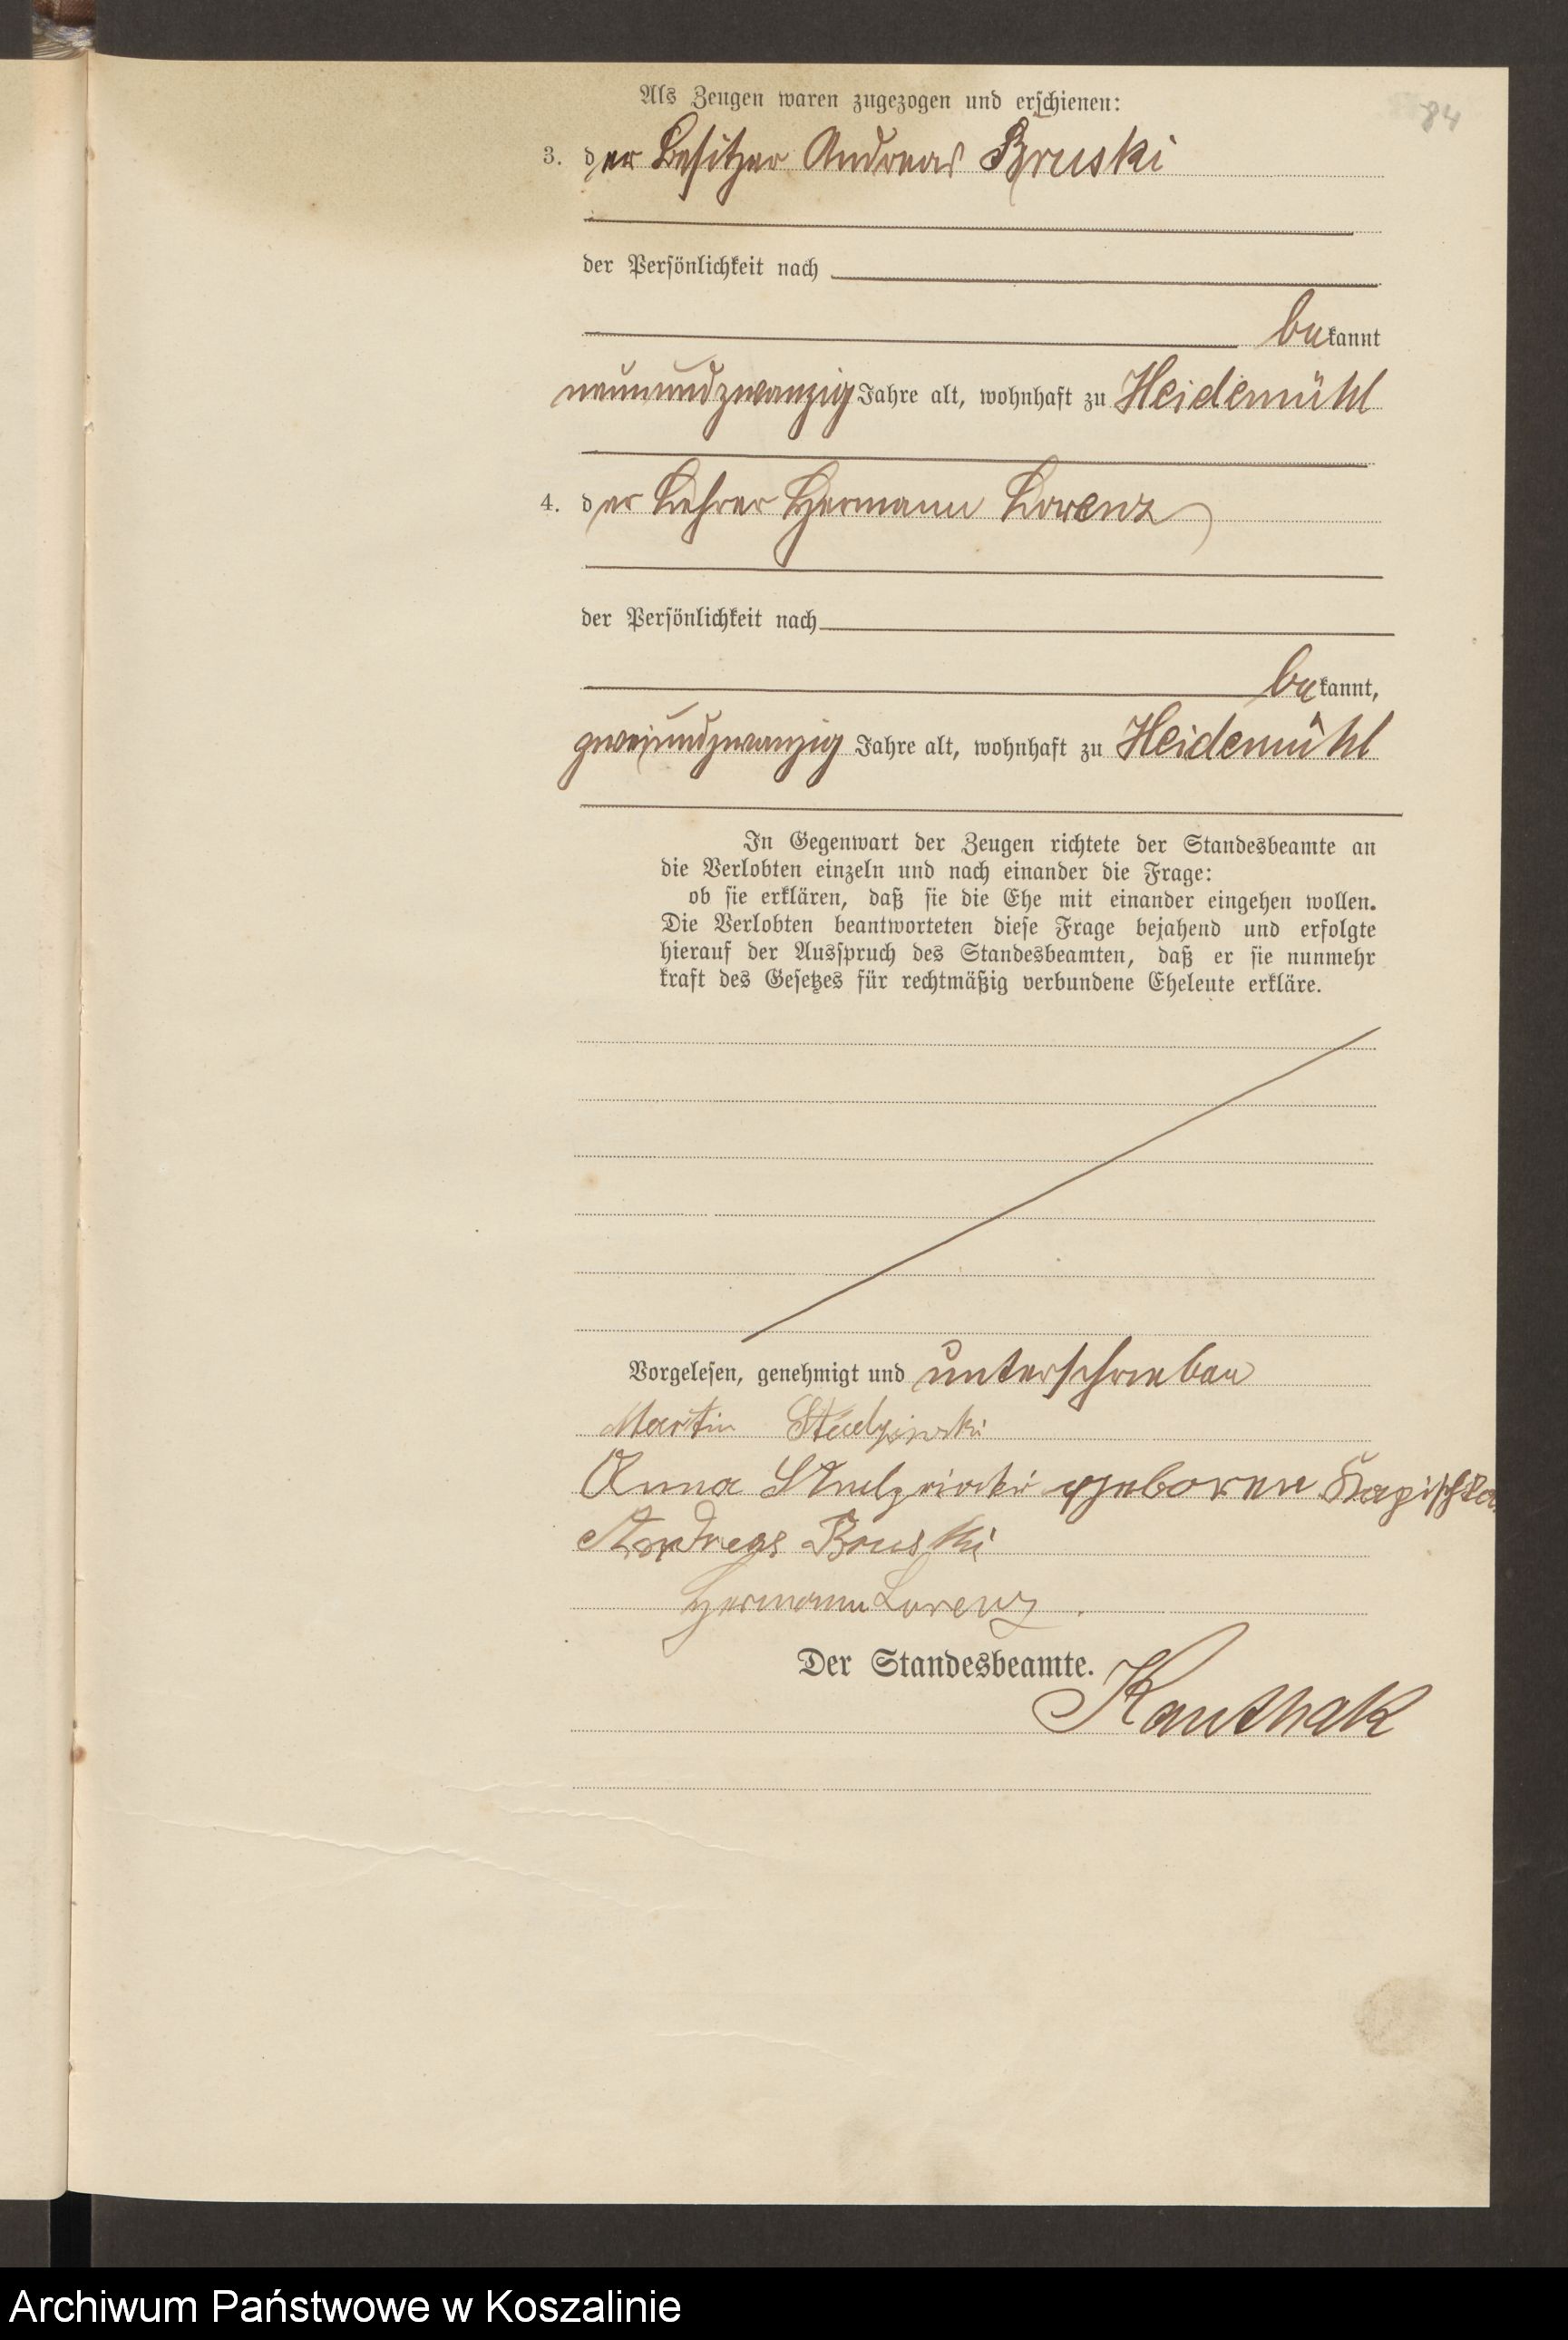 84
Als Zeugen waren zugezogen und erschienen:
3. der Besitzer Andreas Bruski
der Persönlichkeit nach
bekannt
neunundzwanzig Jahre alt, wohnhaft zu Heidemühl
4. der Lehrer Hermann Lorenz
der Persönlichkeit nach
bekannt,
zweiundzwanzig Jahre alt, wohnhaft zu Heidemühl
In Gegenwart der Zeugen richtete der Standesbeamte an
die Verlobten einzeln und nach einander die Frage:
ob sie erklären, daß sie die Ehe mit einander eingehen wollen.
Die Verlobten beantworteten diese Frage bejahend und erfolgte
hierauf der Ausspruch des Standesbeamten, daß er sie nunmehr
kraft des Gesetzes für rechtmäßig verbundene Eheleute erkläre.
Vorgelesen, genehmigt und unterschrieben
Martin Studzinski
Anna Studzinski geboren
Andreas Bruski
Hermann Lorenz.
Der Standesbeamte.
Kauthak
Archiwum Państwowe w Koszalinie